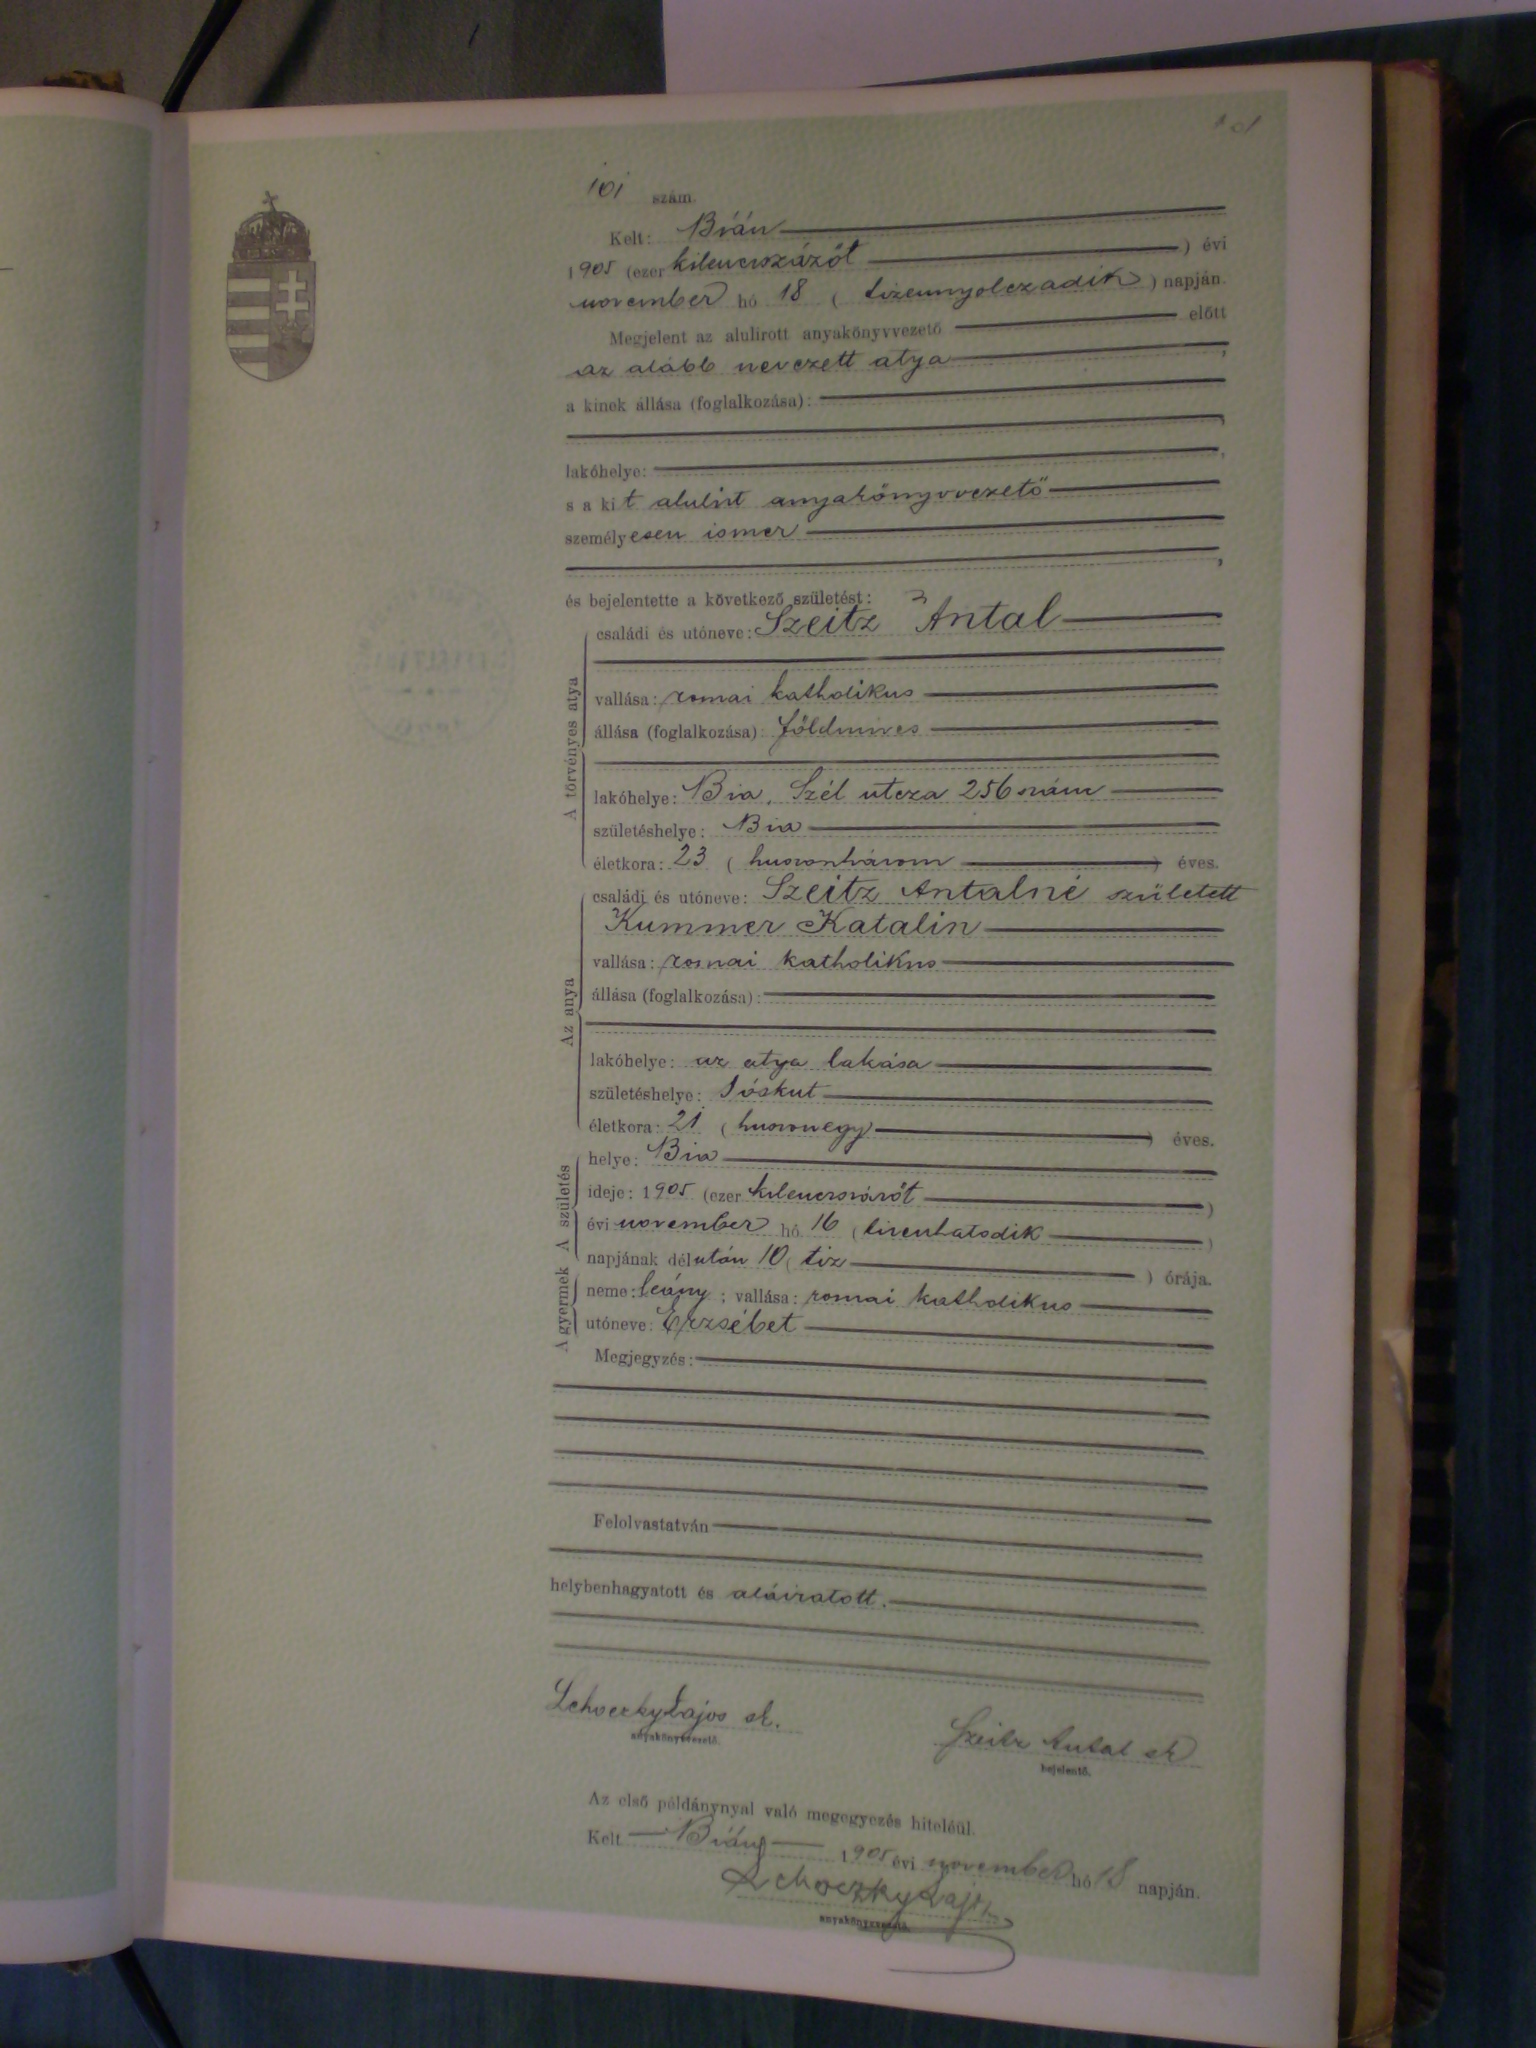 101
101 szám.
Kelt: Bián
1905 (ezer kilencszázöt ) évi
november hó 18 ( tizennyolczadik ) napján.
Megjelent az alulirott anyakönyvvezető előtt
az alább nevezett atya ,
a kinek állása (foglalkozása):
lakóhelye: ,
s a kit alulirt anyakönyvvezető
személyesen ismer
,
és bejelentette a következő születést:
A törvényes atya
családi és utóneve: Szeitz Antal
vallása: romai katholikus
állása (foglalkozása): földmives
lakóhelye: Bia, Szél utcza 256 szám
születéshelye: Bia
életkora: 23 ( huszonhárom ) éves.
Az anya
családi és utóneve: Szeitz Antalné született
Kummer Katalin
vallása: romai katholikus
állása (foglalkozása):
lakóhelye: az atya lakása
születéshelye: Sóskut
életkora: 21 ( huszonegy ) éves.
A születés
helye: Bia
ideje: 1905 (ezer kilencszázöt )
évi november hó 16 ( tizenhatodik )
napjának délután 10 ( tiz ) órája.
A gyermek
neme: leány ; vallása: romai katholikus
utóneve: Erzsébet
Megjegyzés:
Felolvastatván
helybenhagyatott és aláiratott.
Lehoczky Lajos sk.
anyakönyvvezető.
Szeitz Antal sk
bejelentő.
Az első példánynyal való megegyezés hiteléül.
Kelt Bián 1905 évi november hó 18 napján.
Lehoczky Lajos
anyakönyvvezető.